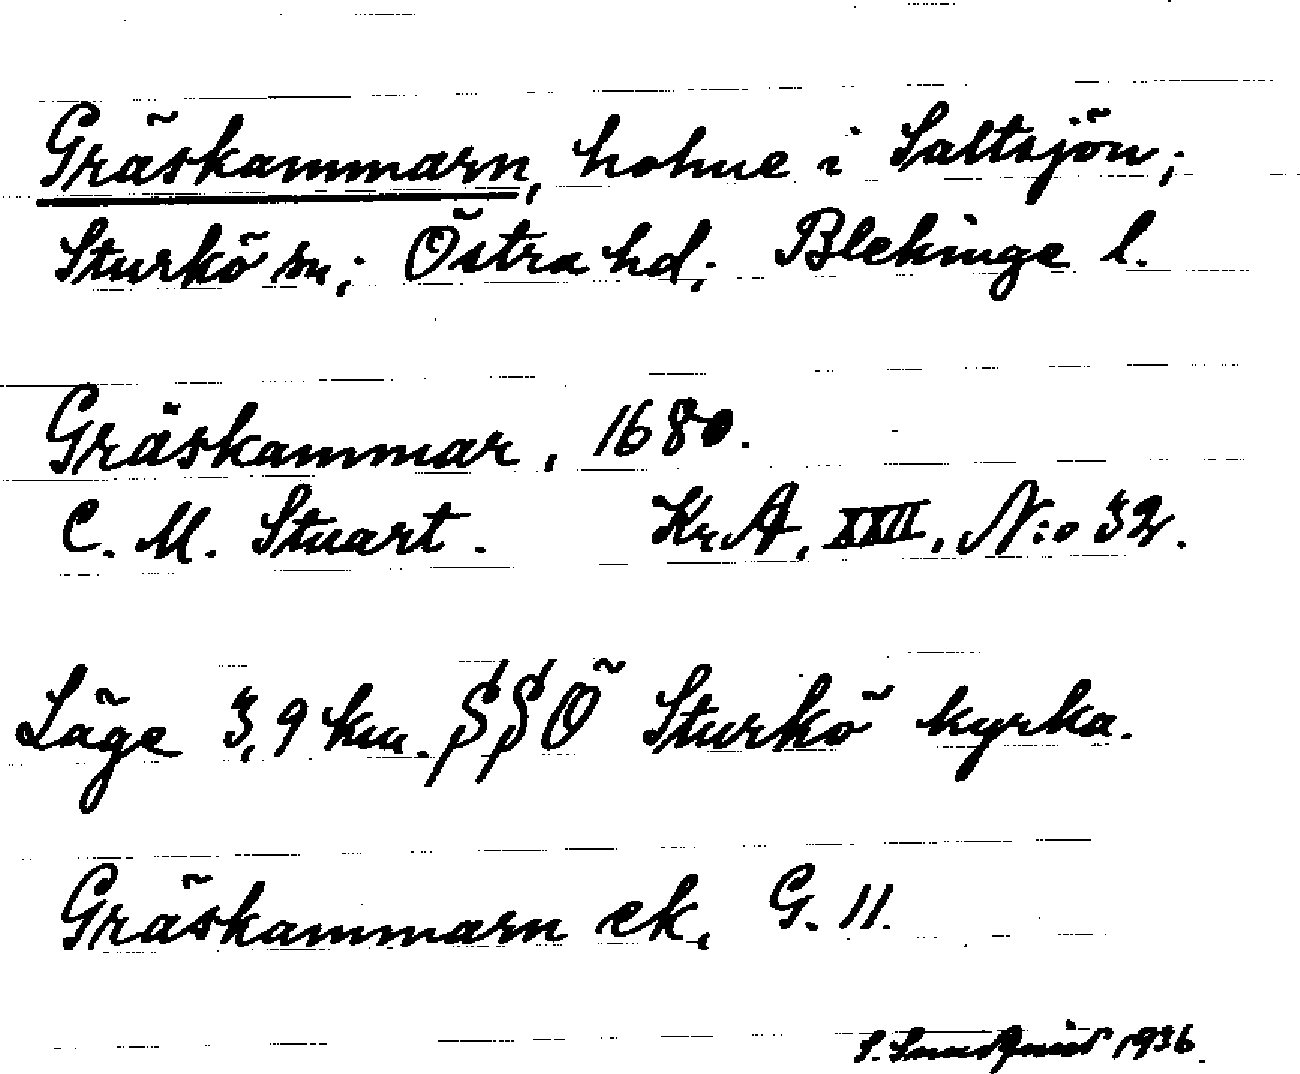 Gräskammarn, holme i Saltsjön;
Sturkö sn; Östra hd; Blekinge l.
Gräskammar, 1680.
C. M. Stuart. KrA, XXII, N:o 32.
Läge 3,9 km. SSÖ Sturkö kyrka.
Gräskammarn ek, G. 11.
S. Sundqvist 1936.